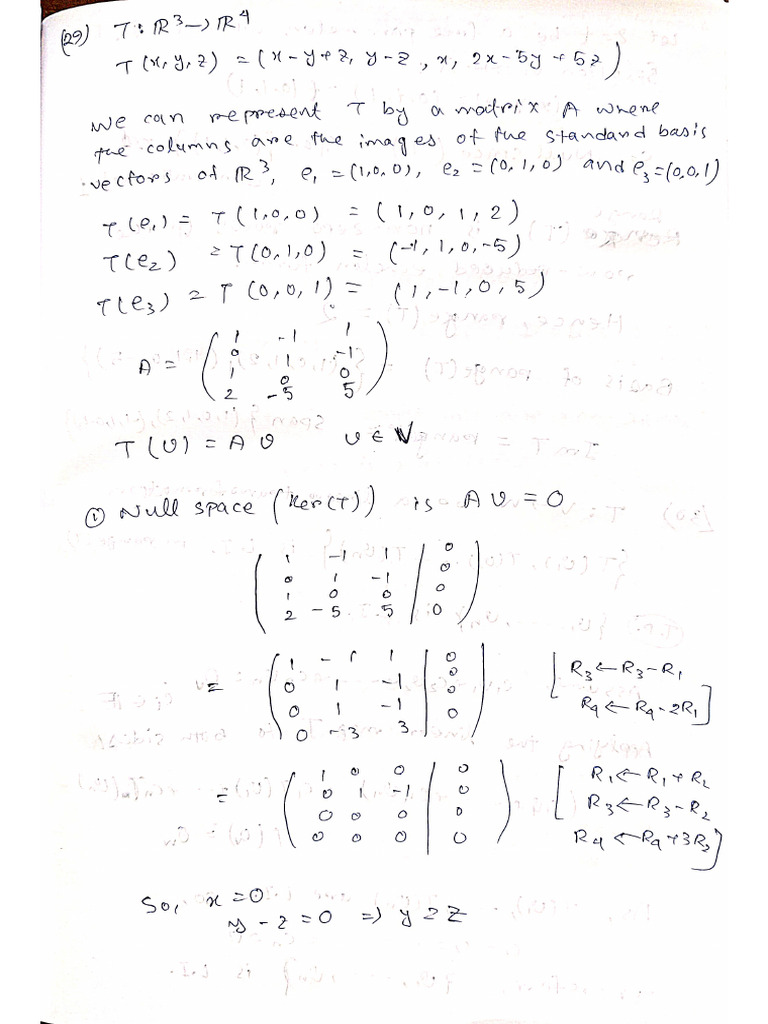 (29) T : ℝ³ → ℝ⁴
T(x, y, z) = (x - y + z, y - z, x, 2x - 5y + 5z)
We can represent T by a matrix A where
the columns are the images of the standard basis
vectors of ℝ³, e₁ = (1,0,0), e₂ = (0,1,0) and e₃ = (0,0,1)
T(e₁) = T(1,0,0) = (1, 0, 1, 2)
T(e₂) = T(0,1,0) = (-1, 1, 0, -5)
T(e₃) = T(0,0,1) = (1, -1, 0, 5)
1 -1 1
0 1 -1
A = 1 0 0
2 -5 5
T(v) = A v v ∈ V
① Null space (Ker(T)) is A v = 0
1 -1 1 | 0
0 1 -1 | 0
1 0 0 | 0
2 -5 5 | 0
1 -1 1 | 0 [R₃ ← R₃ - R₁
= 0 1 -1 | 0
0 1 -1 | 0 R₄ ← R₄ - 2R₁]
0 -3 3 | 0
1 0 0 | 0 [R₁ ← R₁ + R₂
= 0 1 -1 | 0 R₃ ← R₃ - R₂
0 0 0 | 0
0 0 0 | 0 R₄ ← R₄ + 3R₂]
So, x = 0
y - z = 0 ⇒ y = z